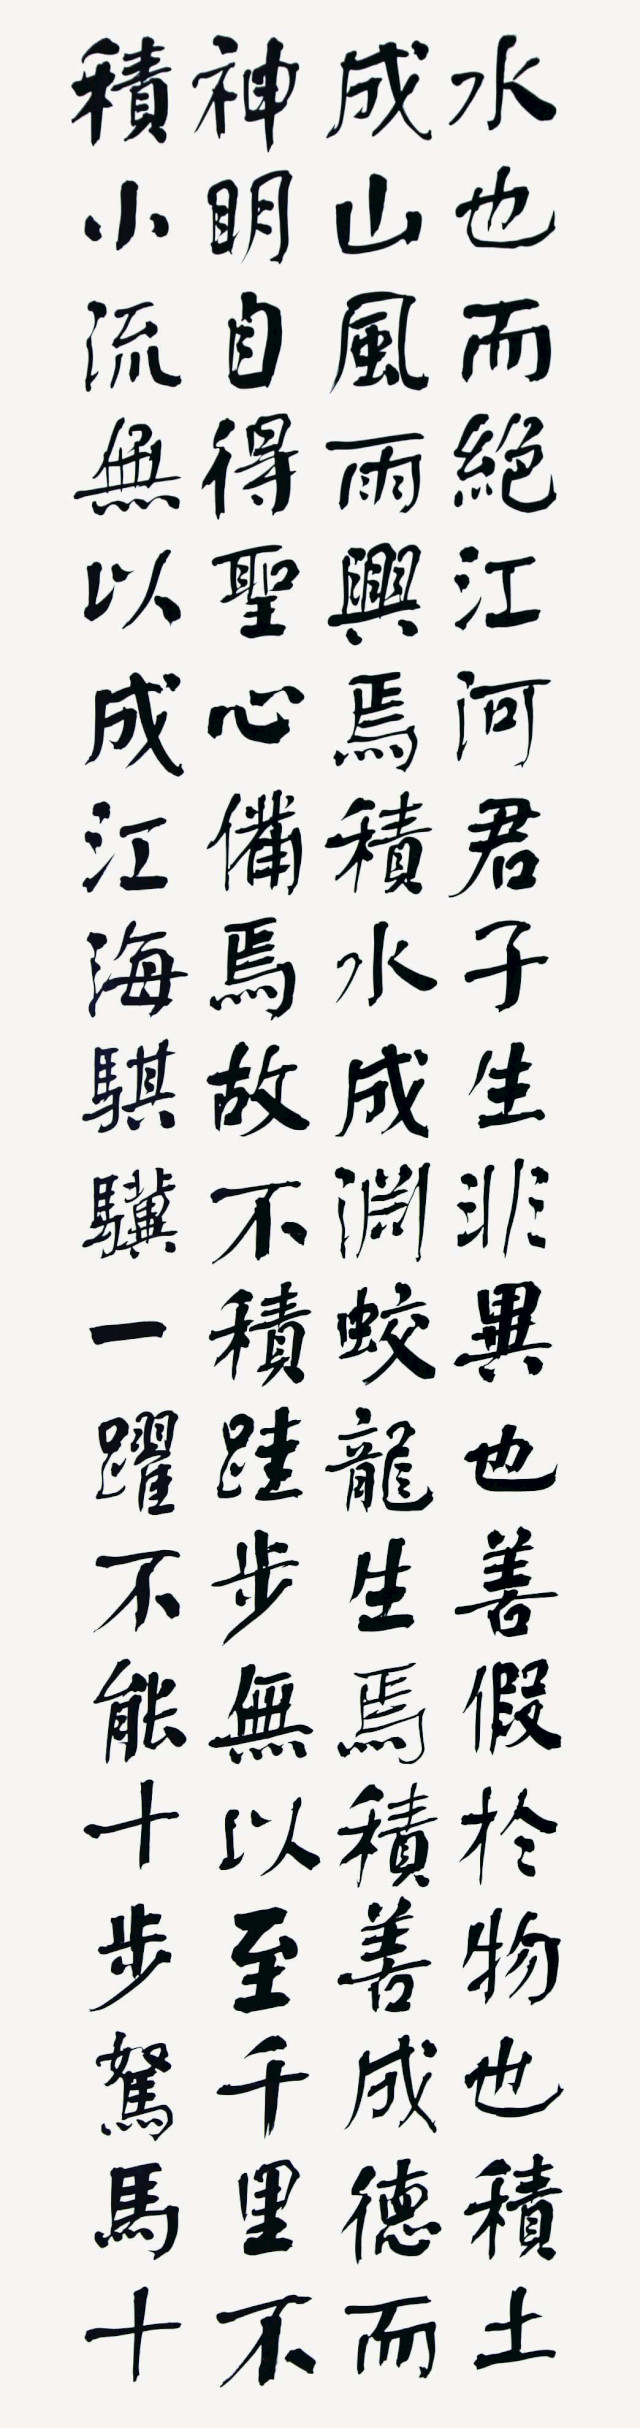 水也而絕江河君子生非異也善假於物也積土
成山風雨興焉積水成淵蛟龍生焉積善成德而
神明自得聖心備焉故不積跬步無以至千里不
積小流無以成江海騏驥一躍不能十步駑馬十